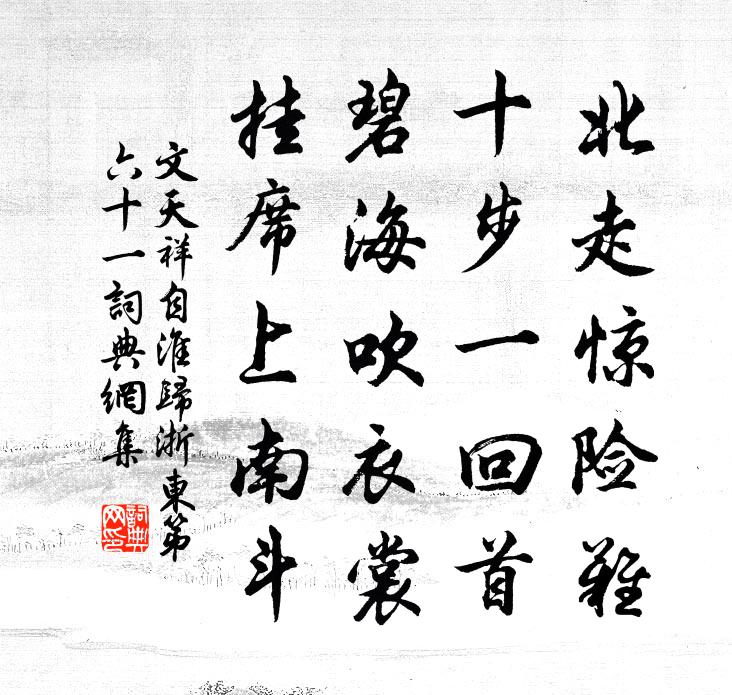 北走惊险难
十步一回首
碧海吹衣裳
挂席上南斗
文天祥自淮歸浙東第
六十一詞典網集
詞典
网印